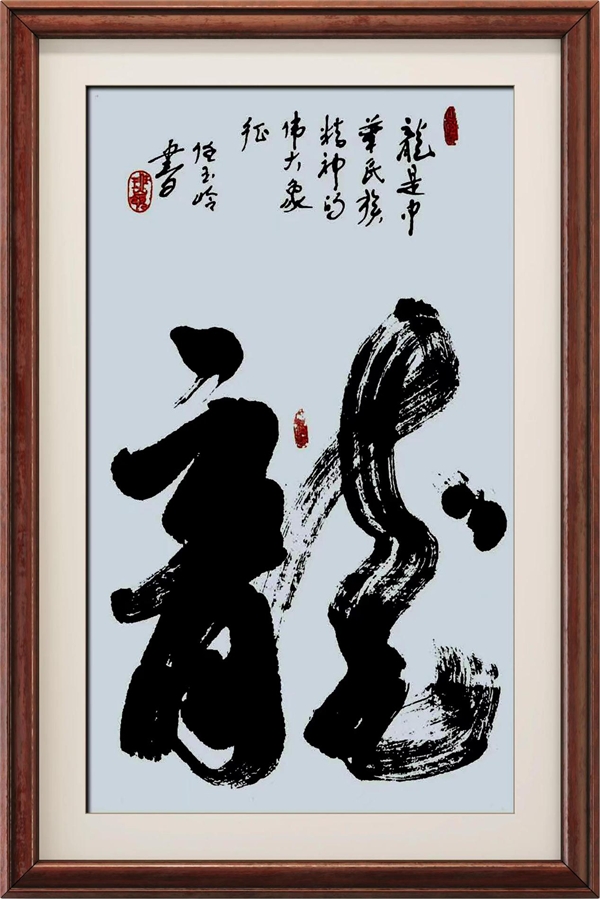 龍是中
華民族
精神的
伟大象
征
任玉岭
書
龍